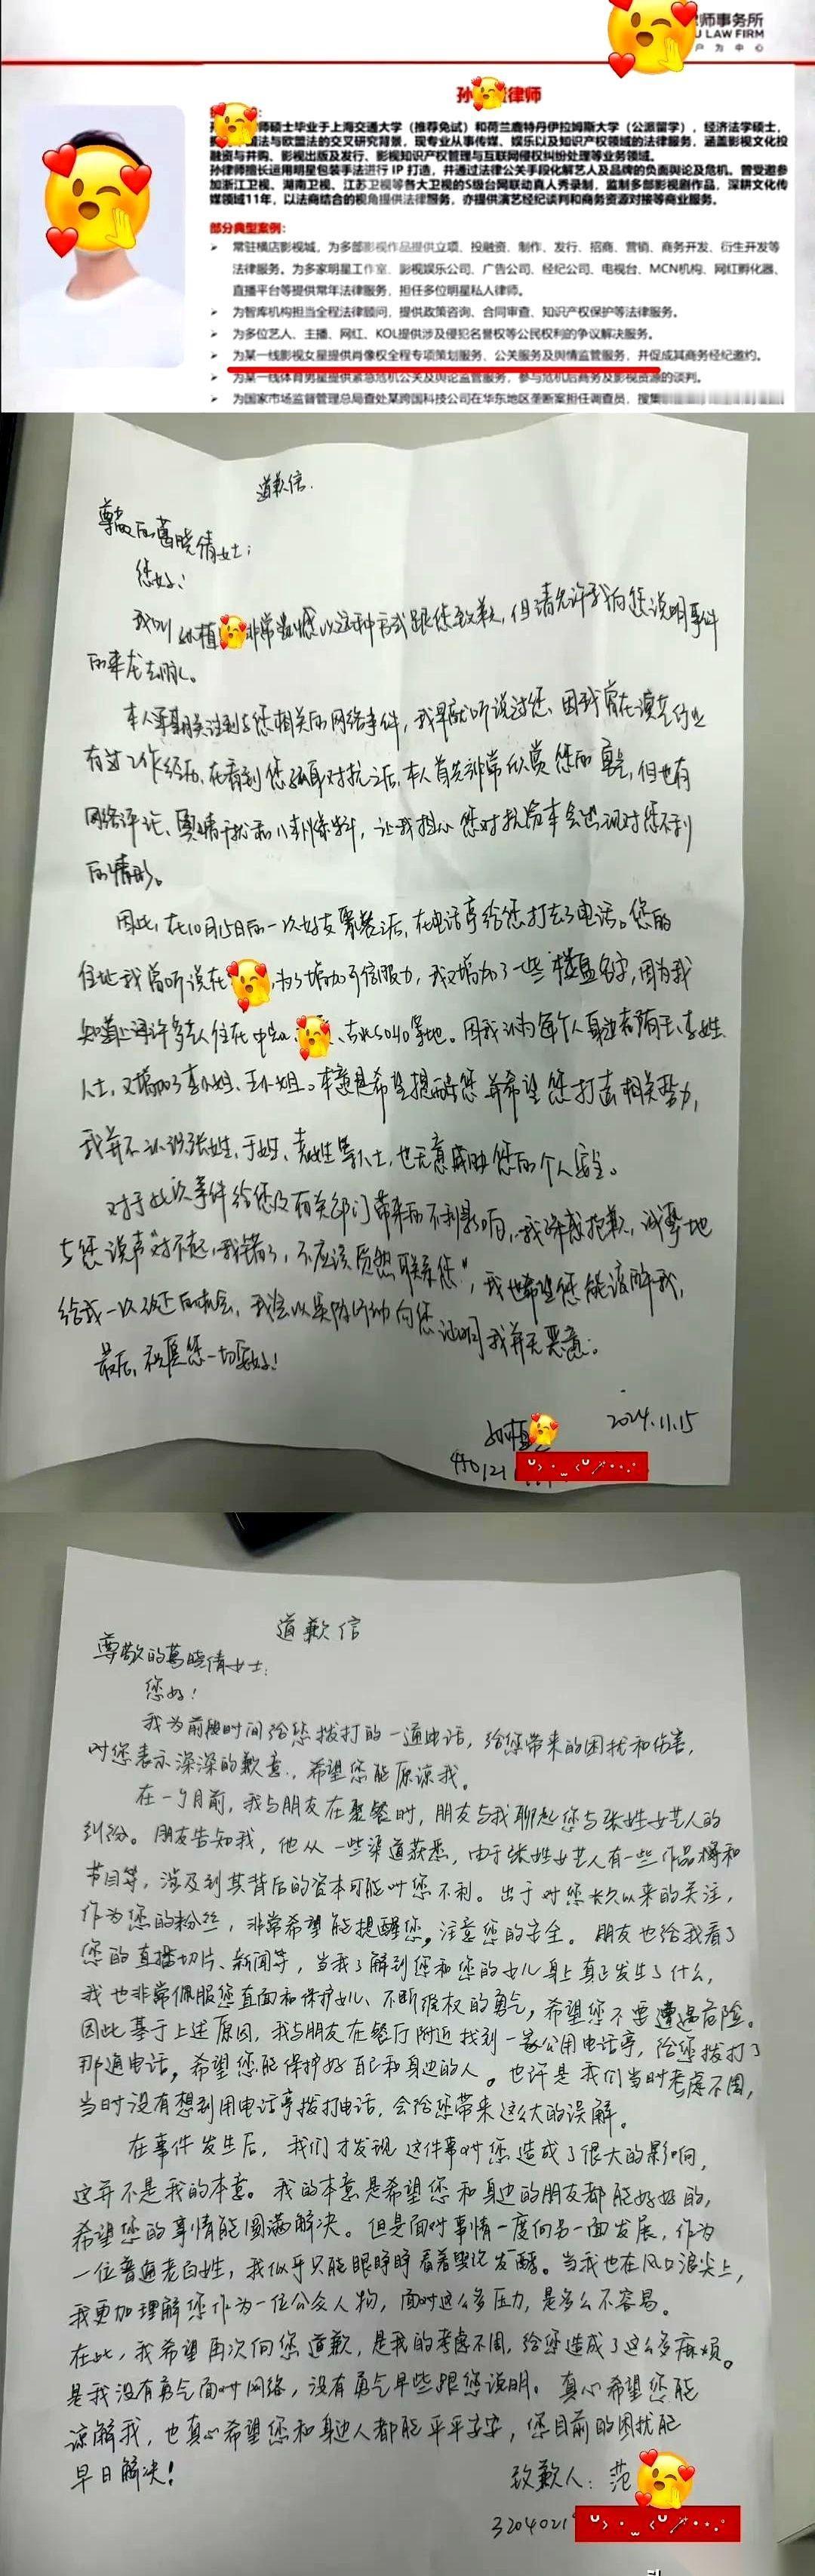 律师事务所
U LAW FIRM
户 为 中 心
孙 律师
师硕士毕业于上海交通大学（推荐免试）和荷兰鹿特丹伊拉姆斯大学（公派留学），经济法学硕士，
法与欧盟法的交叉研究背景，现专业从事传媒、娱乐以及知识产权领域的法律服务，涵盖影视文化投
融资与并购、影视出版及发行、影视知识产权管理与互联网侵权纠纷处理等业务领域。
孙律师擅长运用明星包装手法进行 IP 打造，并通过法律公关手段化解艺人及品牌的负面舆论及危机。曾受邀参
加浙江卫视、湖南卫视、江苏卫视等各大卫视的S级台网联动真人秀录制，监制多部影视剧作品，深耕文化传
媒领域11年，以法商结合的视角提供法律服务，亦提供演艺经纪谈判和商务资源对接等商业服务。
部分典型案例：
常驻横店影视城，为多部影视作品提供立项、投融资、制作、发行、招商、营销、商务开发、衍生开发等
法律服务。为多家明星工作室、影视娱乐公司、广告公司、经纪公司、电视台、MCN机构、网红孵化器、
直播平台等提供常年法律服务，担任多位明星私人律师。
为智库机构担当全程法律顾问，提供政策咨询、合同审查、知识产权保护等法律服务。
为多位艺人、主播、网红、KOL提供涉及侵犯名誉权等公民权利的争议解决服务。
为某一线影视女星提供肖像权全程专项策划服务、公关服务及舆情监管服务，并促成其商务经纪邀约。
为某一线体育男星提供紧急危机公关及舆论监管服务，参与危机后商务及影视资源的谈判。
为国家市场监督管理总局查处某跨国科技公司在华东地区垄断案担任调查员，搜集
道歉信.
尊敬的葛晓倩女士：
您好！
我叫孙植 非常 以这种方式跟您致歉，但请允许我向您说明事件
的来龙去脉。
本人 期关注到与您相关的网络事件，我早就听说过您、因我曾在演艺行业
有过工作经历，在看到您 对抗之后，本人首先非常欣赏您的勇气，但也有
网络评论、舆情干扰和八卦爆料，让我担心您对抗资本会出现对您不利
的情形。
因此，在10月15日的一次好友聚餐之后，在电话亭给您打去了电话。您的
住址我曾听说在 ，为了增加可信服力，我又增加了一些楼盘名字，因为我
知道上海许多艺人住在中 、 、古北SOHO等地。因我认为每个人身边都有王、李姓
人士，又增加了李小姐、王小姐。本意是希望提醒您并希望您打击相关势力，
我并不认识张姓、于姓、袁姓等人士，也无意威胁您的个人安全。
对于此次事件给您及有关部门带来的不利影响，我深感抱歉，诚挚地
与您说声“对不起，我错了，不应该贸然联系您”，我也希望您能谅解我，
给我一次改正的机会，我会以实际行动向您证明我并无恶意。
最后，祝愿您一切安好！
孙植 2024.11.15
440121
道歉信
尊敬的葛晓倩女士：
您好！
我为前段时间给您拨打的一通电话，给您带来的困扰和伤害，
对您表示深深的歉意，希望您能原谅我。
在一个月前，我与朋友在聚餐时，朋友与我聊起您与张姓女艺人的
纠纷。朋友告知我，他从一些渠道获悉，由于张姓女艺人有一些作品将和
节目等，涉及到其背后的资本可能对您不利。出于对您长久以来的关注，
作为您的粉丝，非常希望能提醒您，注意您的安全。朋友也给我看了
您的直播切片、新闻等，当我了解到您和您的女儿身上真正发生了什么，
我也非常佩服您直面和保护女儿、不断维权的勇气，希望您不要遭遇危险。
因此基于上述原因，我与朋友在餐厅附近找到一家公用电话亭，给您拨打了
那通电话，希望您能保护好自己和身边的人。也许是我们当时考虑不周，
当时没有想到用电话亭拨打电话，会给您带来这么大的误解。
在事件发生后，我们才发现这件事对您造成了很大的影响，
这并不是我的本意。我的本意是希望您和身边的朋友都能好好的，
希望您的事情能圆满解决。但是面对事情一度向另一面发展，作为
一位普通老百姓，我似乎只能眼睁睁看着舆论发酵。当我也在风口浪尖上，
我更加理解您作为一位公众人物，面对这么多压力，是多么不容易。
在此，我希望再次向您道歉，是我的考虑不周，给您造成了这么多麻烦。
是我没有勇气面对网络，没有勇气早些跟您说明。真心希望您能
谅解我，也真心希望您和身边人都能平平安安，您目前的困扰能
早日解决！
致歉人：范
3204021